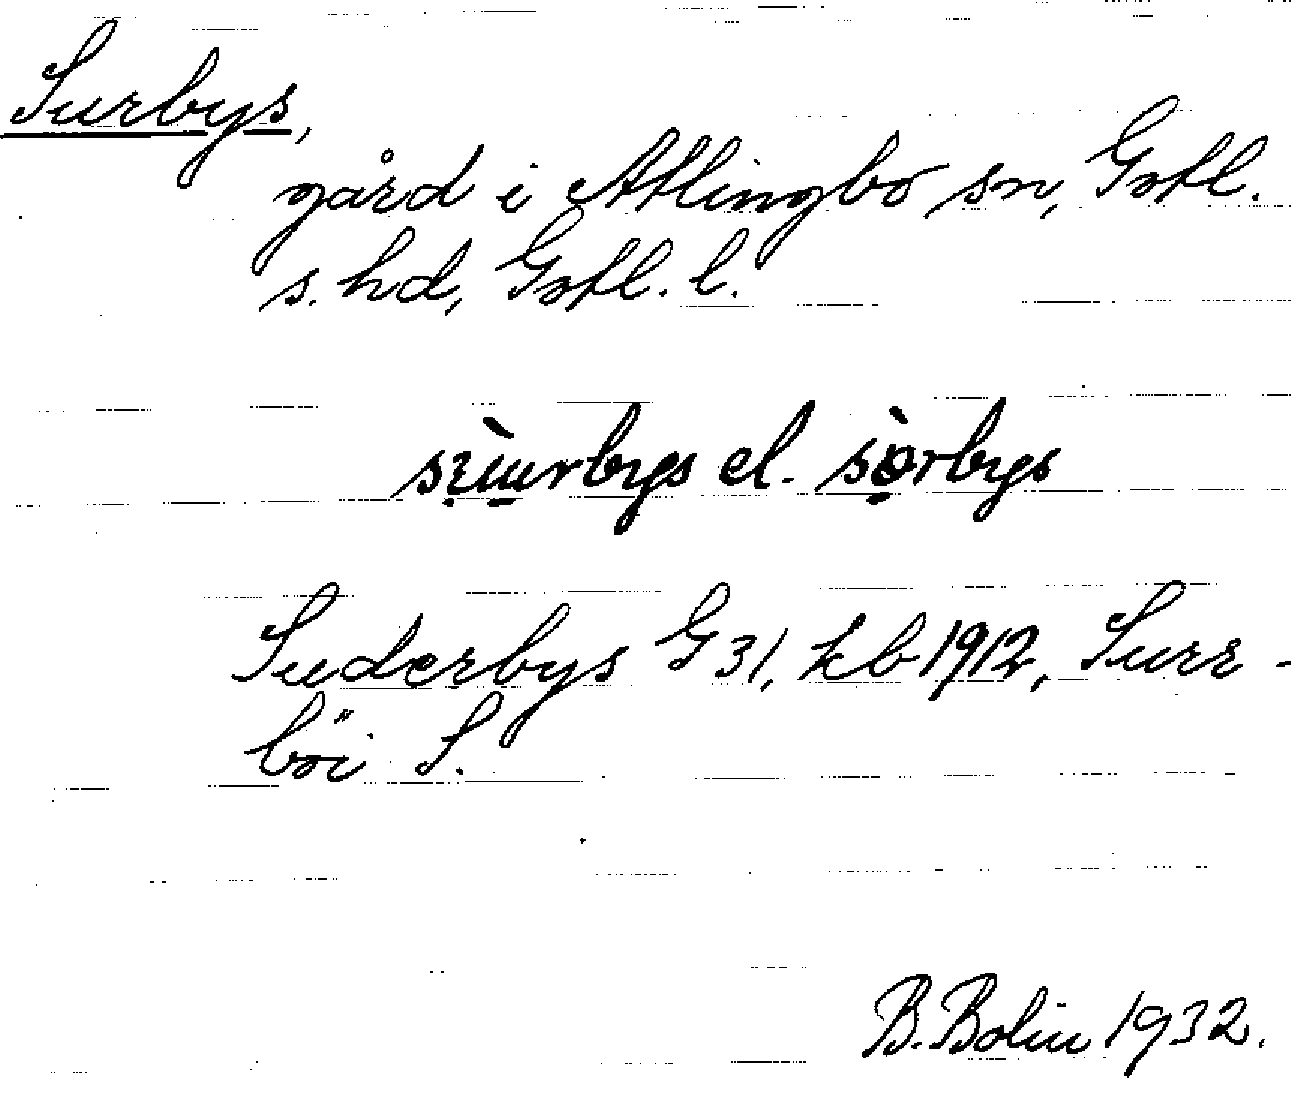 Surbys,
gård i Atlingbo sn, Gotl.
s. hd, Gotl. l.
el. sòrbys
Suderbys G 31, kb 1912, Surr-
böi S.
B. Bolin 1932.